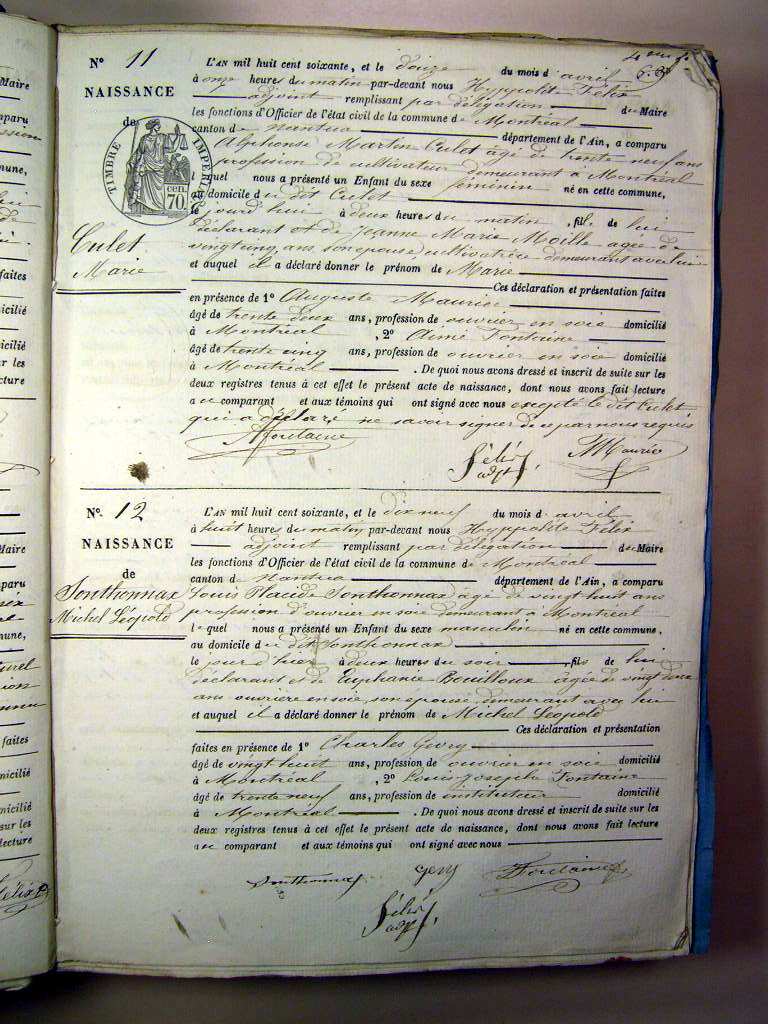 N° 11
NAISSANCE
de
TIMBRE IMPERIAL
70 cen.
Culet
Marie
L'AN mil huit cent soixante, et le douze du mois d'avril
à onze heures du matin par-devant nous Hyppolite Félix
adjoint remplissant par délégation du Maire
les fonctions d'Officier de l'état civil de la commune de Montréal
canton de Nantua département de l'Ain, a comparu
Alphonse Martin Culet âgé de trente neuf ans
profession de cultivateur demeurant à Montréal
lequel nous a présenté un Enfant du sexe féminin né en cette commune,
au domicile du dit Culet
le jourd'hui à deux heures du matin, fille de lui
déclarant et de Jeanne Marie Moille agée de
vingt cinq ans, son épouse, cultivatrice demeurant avec lui
et auquel il a déclaré donner le prénom de Marie
Ces déclaration et présentation faites
en présence de 1° Auguste Maurier
âgé de trente deux ans, profession de ouvrier en soie domicilié
à Montréal, 2° Aimé Fontaine
âgé de trente cinq ans, profession de ouvrier en soie domicilié
à Montréal. De quoi nous avons dressé et inscrit de suite sur les
deux registres tenus à cet effet le présent acte de naissance, dont nous avons fait lecture
au comparant et aux témoins qui ont signé avec nous excepté le dit Culet
qui a déclaré ne savoir signer de ce par nous requis
Afontaine Félix adjt Maurier
N° 12
NAISSANCE
de
Sonthonnax
Michel Léopold
L'AN mil huit cent soixante, et le dix neuf du mois d'avril
à huit heures du matin par-devant nous Hyppolite Félix
adjoint remplissant par délégation du Maire
les fonctions d'Officier de l'état civil de la commune de Montréal
canton de Nantua département de l'Ain, a comparu
Louis Placide Sonthonnax âgé de vingt huit ans
profession d'ouvrier en soie demeurant à Montréal
lequel nous a présenté un Enfant du sexe masculin né en cette commune,
au domicile du dit Sonthonnax
le jour d'hier à deux heures du soir, fils de lui
déclarant et de Euphanie Bouilloux âgée de vingt deux
ans ouvrière en soie, son épouse, demeurant avec lui
et auquel il a déclaré donner le prénom de Michel Léopold
Ces déclaration et présentation
faites en présence de 1° Charles Gevry
âgé de vingt huit ans, profession de ouvrier en soie domicilié
à Montréal, 2° Louis Joseph Fontaine
âgé de trente neuf ans, profession de instituteur domicilié
à Montréal. De quoi nous avons dressé et inscrit de suite sur les
deux registres tenus à cet effet le présent acte de naissance, dont nous avons fait lecture
au comparant et aux témoins qui ont signé avec nous
Sonthonnax Gevry Fontaine
Félix adjt